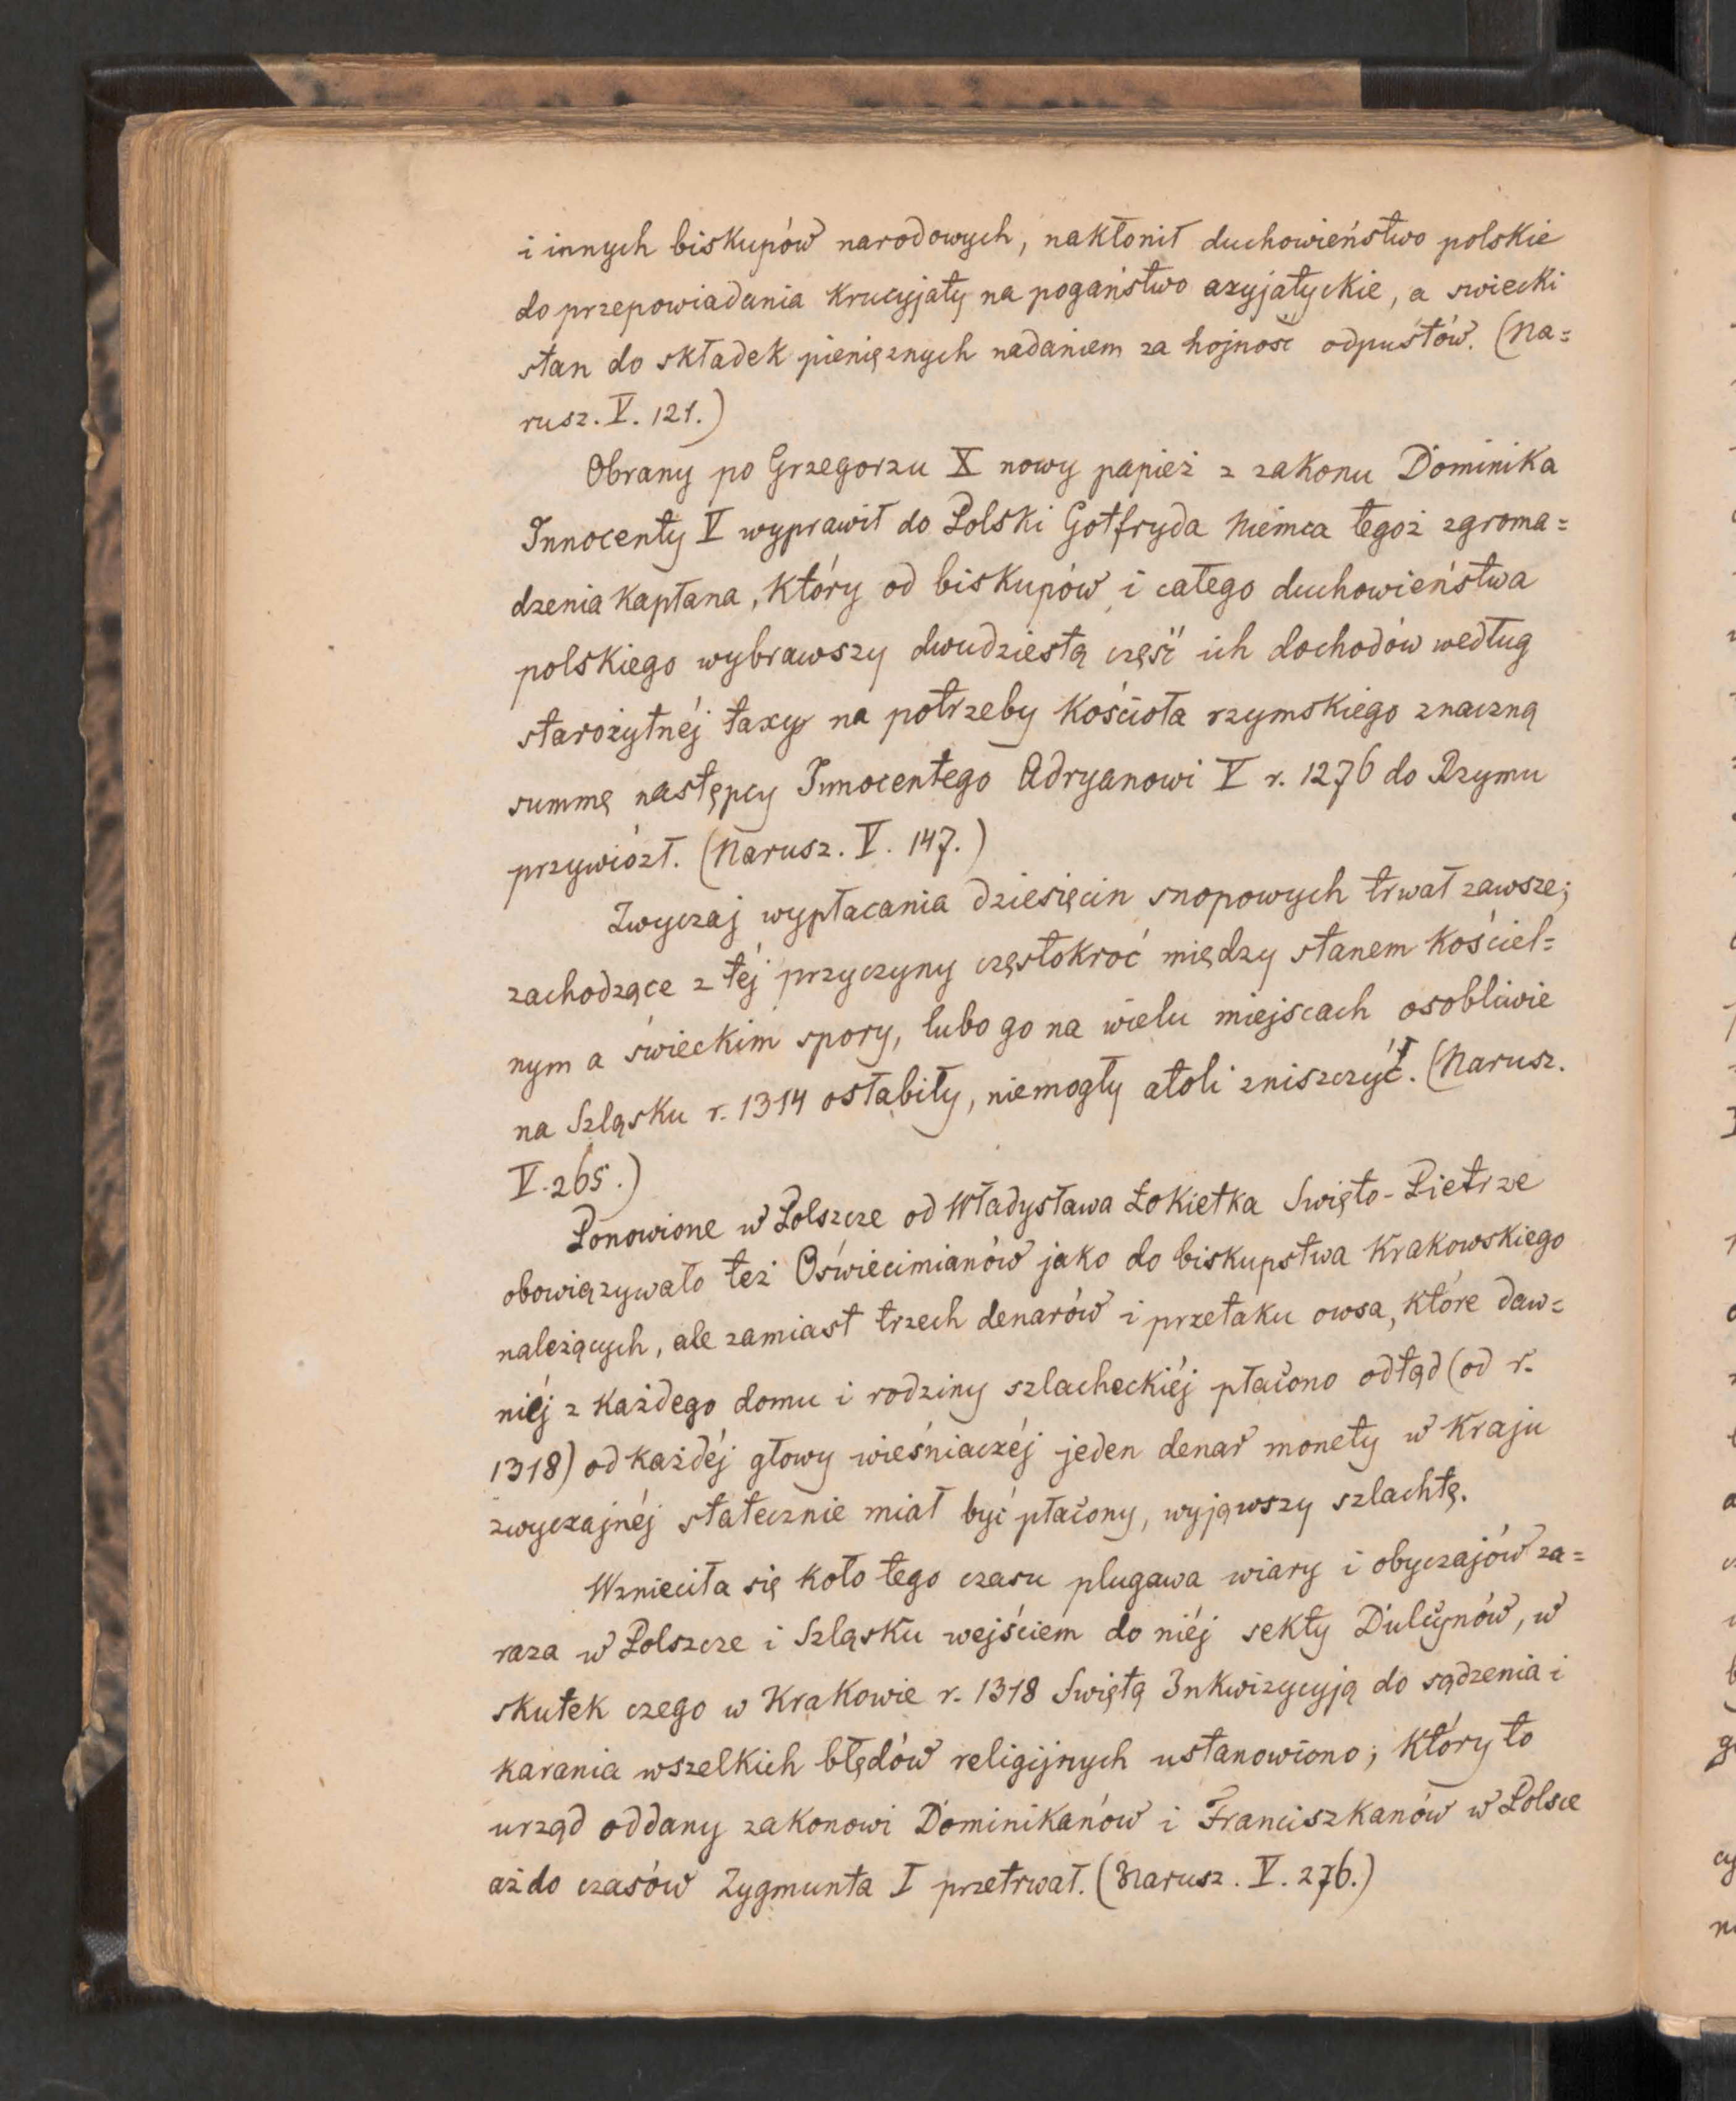 i innych biskupów narodowych, nakłonił duchowieństwo polskie
do przepowiadania krucyjaty na pogaństwo azyjatyckie, a swiecki
stan do składek pieniężnych nadaniem za hojność odpustów. (Na=
rusz. V. 121.)
Obrany po Grzegorzu X nowy papież z zakonu Dominika
Innocenty V wyprawił do Polski Gotfryda Niemca tegoż zgroma=
dzenia kapłana, który od biskupów i całego duchowieństwa
polskiego wybrawszy dwudziestą część ich dochodów według
starożytnéj taxy na potrzeby kościoła rzymskiego znaczną
summę następcy Innocentego Adryanowi V r. 1276 do Rzymu
przywiózł. (Narusz. V. 147.)
Zwyczaj wypłacania dziesięcin snopowych trwał zawsze;
zachodzące z téj przyczyny częstokroć między stanem kościel=
nym a świeckim spory, lubo go na wielu miejscach osobliwie
na Szląsku r. 1314 osłabiły, niemogły atoli zniszczyć. (Narusz.
V. 265.)
Ponowione w Polszcze od Władysława Łokietka Święto-Pietrze
obowiązywało też Oświecimianów jako do biskupstwa Krakowskiego
należących, ale zamiast trzech denarów i przetaku owsa, które daw=
niéj z każdego domu i rodziny szlacheckiéj płacono odtąd (od r.
1318) od każdéj głowy wieśniaczéj jeden denar monety w kraju
zwyczajnéj statecznie miał być płacony, wyjąwszy szlachtę.
Wznieciła się koło tego czasu plugawa wiary i obyczajów za=
raza w Polszcze i Szląsku wejściem do niéj sekty Dulcynów, w
skutek czego w Krakowie r. 1318 Świętą Inkwizycyją do sądzenia i
karania wszelkich błędów religijnych ustanowiono; który to
urząd oddany zakonowi Dominikanów i Franciszkanów w Polsce
aż do czasów Zygmunta I przetrwał. (Narusz. V. 276.)